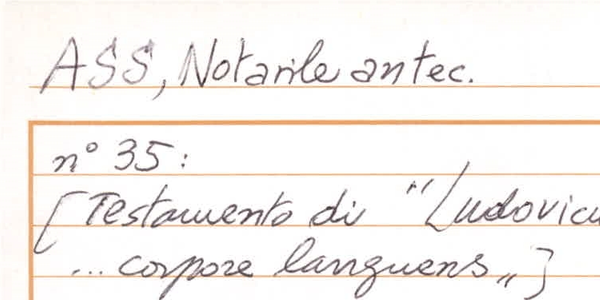 ASS, Notarile antec.
n° 35:
[Testamento di "Ludovicu
... corpore languens„]